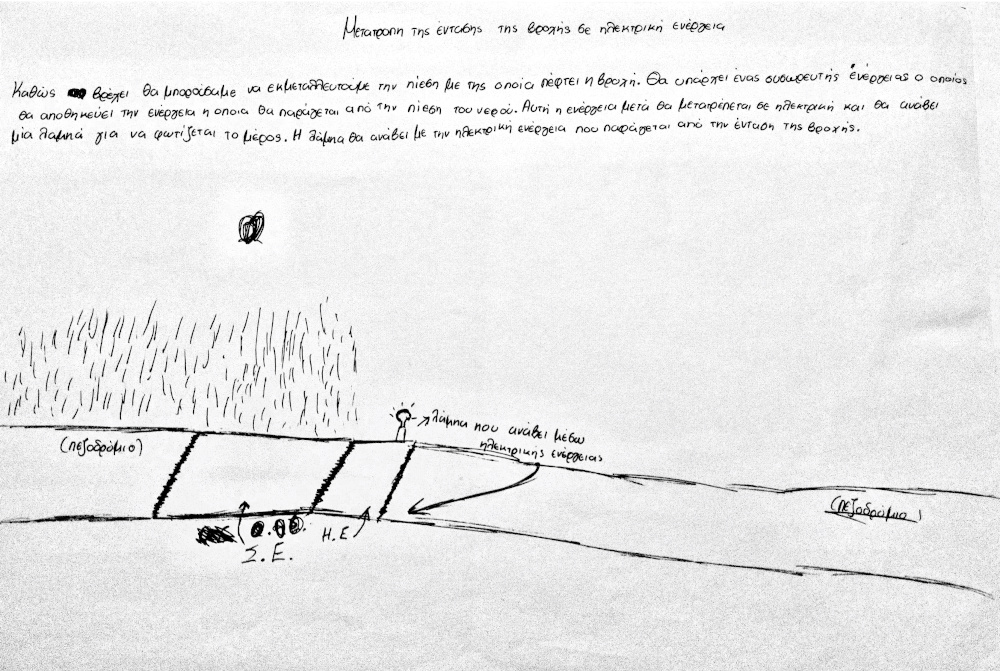 Μετατροπη της έντασης της βροχής σε ηλεκτρική ενέργεια
Καθώς βρέχει θα μπορούσαμε να εκμεταλλευτούμε την πίεση με της οποία πέφτει η βροχή. Θα υπάρχει ένας συσωρευτής ενέργειας ο οποίος
θα αποθηκεύει την ενέργεια η οποια θα παράγεται από την πίεση του νερού. Αυτή η ενέργεια μετά θα μετατρέπεται σε ηλεκτρική και θα ανάβει
μία λαμπά για να φωτίζεται το μέρος. Η λάμπα θα ανάβει με την ηλεκτρική ενέργεια που παράγεται από την ένταση της βροχής.
λάμπα που ανάβει μέσω
ηλεκτρικής ενέργειας
(πεζοδρόμιο)
(πεζοδρόμιο)
Η.Ε.
Σ.Ε.